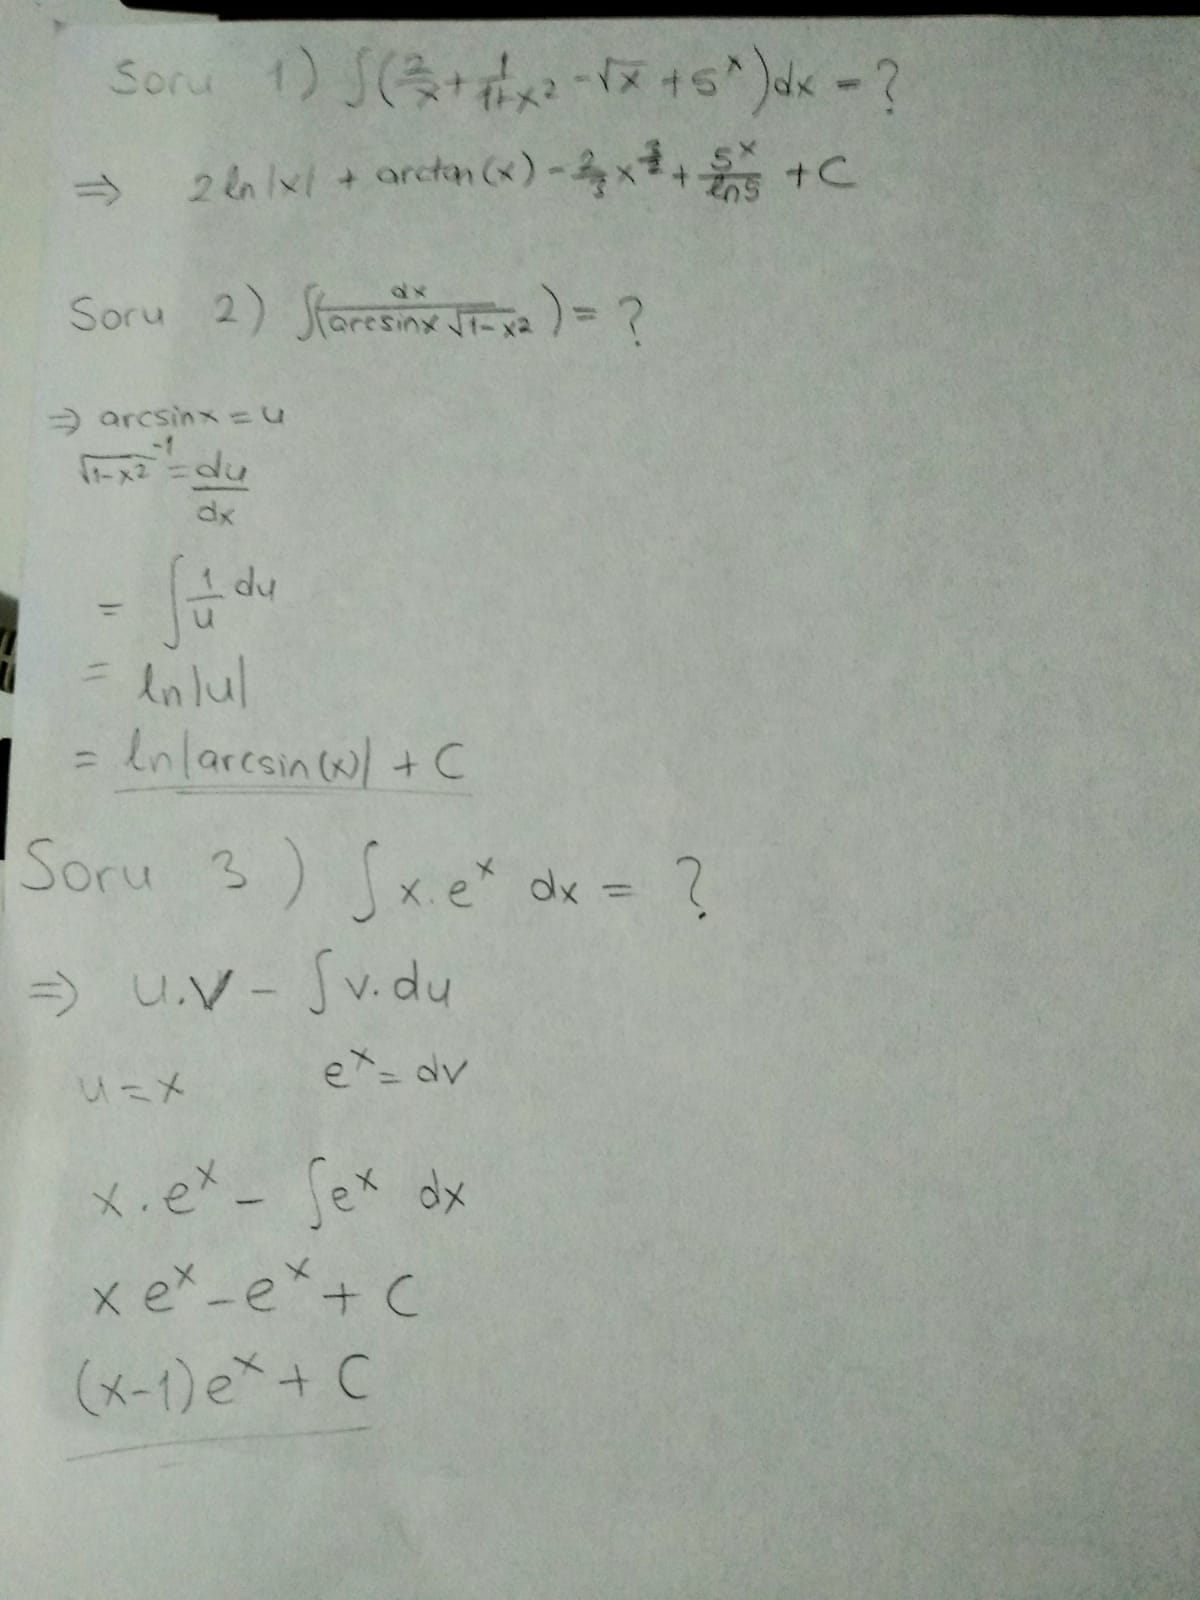 Soru 1) ∫(2/x + 1/1+x² - √x + 5ˣ)dx = ?
⇒ 2 ln|x| + arctan(x) - 2/3 x^3/2 + 5ˣ/ln5 + C
Soru 2) ∫(dx/arcsinx √1-x²) = ?
⇒ arcsinx = u
√1-x² ⁻¹ = du/dx
= ∫ 1/u du
= ln|u|
= ln|arcsin(x)| + C
Soru 3) ∫ x.eˣ dx = ?
⇒ u.v - ∫ v.du
u = x eˣ = dv
x.eˣ - ∫eˣ dx
x eˣ - eˣ + C
(x-1)eˣ + C